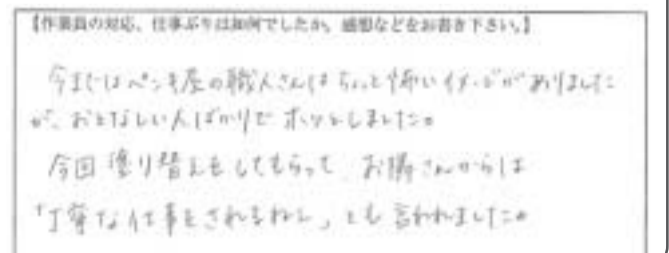 【作業員の対応、仕事ぶりは如何でしたか。感想などをお書き下さい。】
今まではペンキ屋の職人さんはちょっと怖いイメージがありました
が、おとなしい人ばかりでホッとしました。
今回塗り替えをしてもらって、お隣さんからは
「丁寧な仕事をされるねぇ」とも言われました。